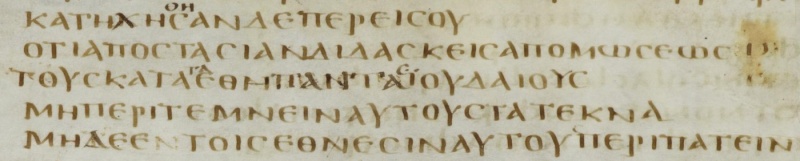 ΚΑΤΗΧΗϹΑΝΔΕΠΕΡΕΙϹΟΥ
ΟΤΙΑΠΟϹΤΑϹΙΑΝΔΙΔΑϹΚΕΙϹΑΠΟΜΩϹΕΩϹ
ΤΟΥϹΚΑΤΑ ΙΟΥΔΑΙΟΥϹ
ΜΗΠΕΡΙΤΕΜΝΕΙΝΑΥΤΟΥϹΤΑΤΕΚΝΑ
ΜΗΔΕΕΝΤΟΙϹΕΘΝΕϹΙΝΑΥΤΟΥΠΕΡΙΠΑΤΕΙΝ